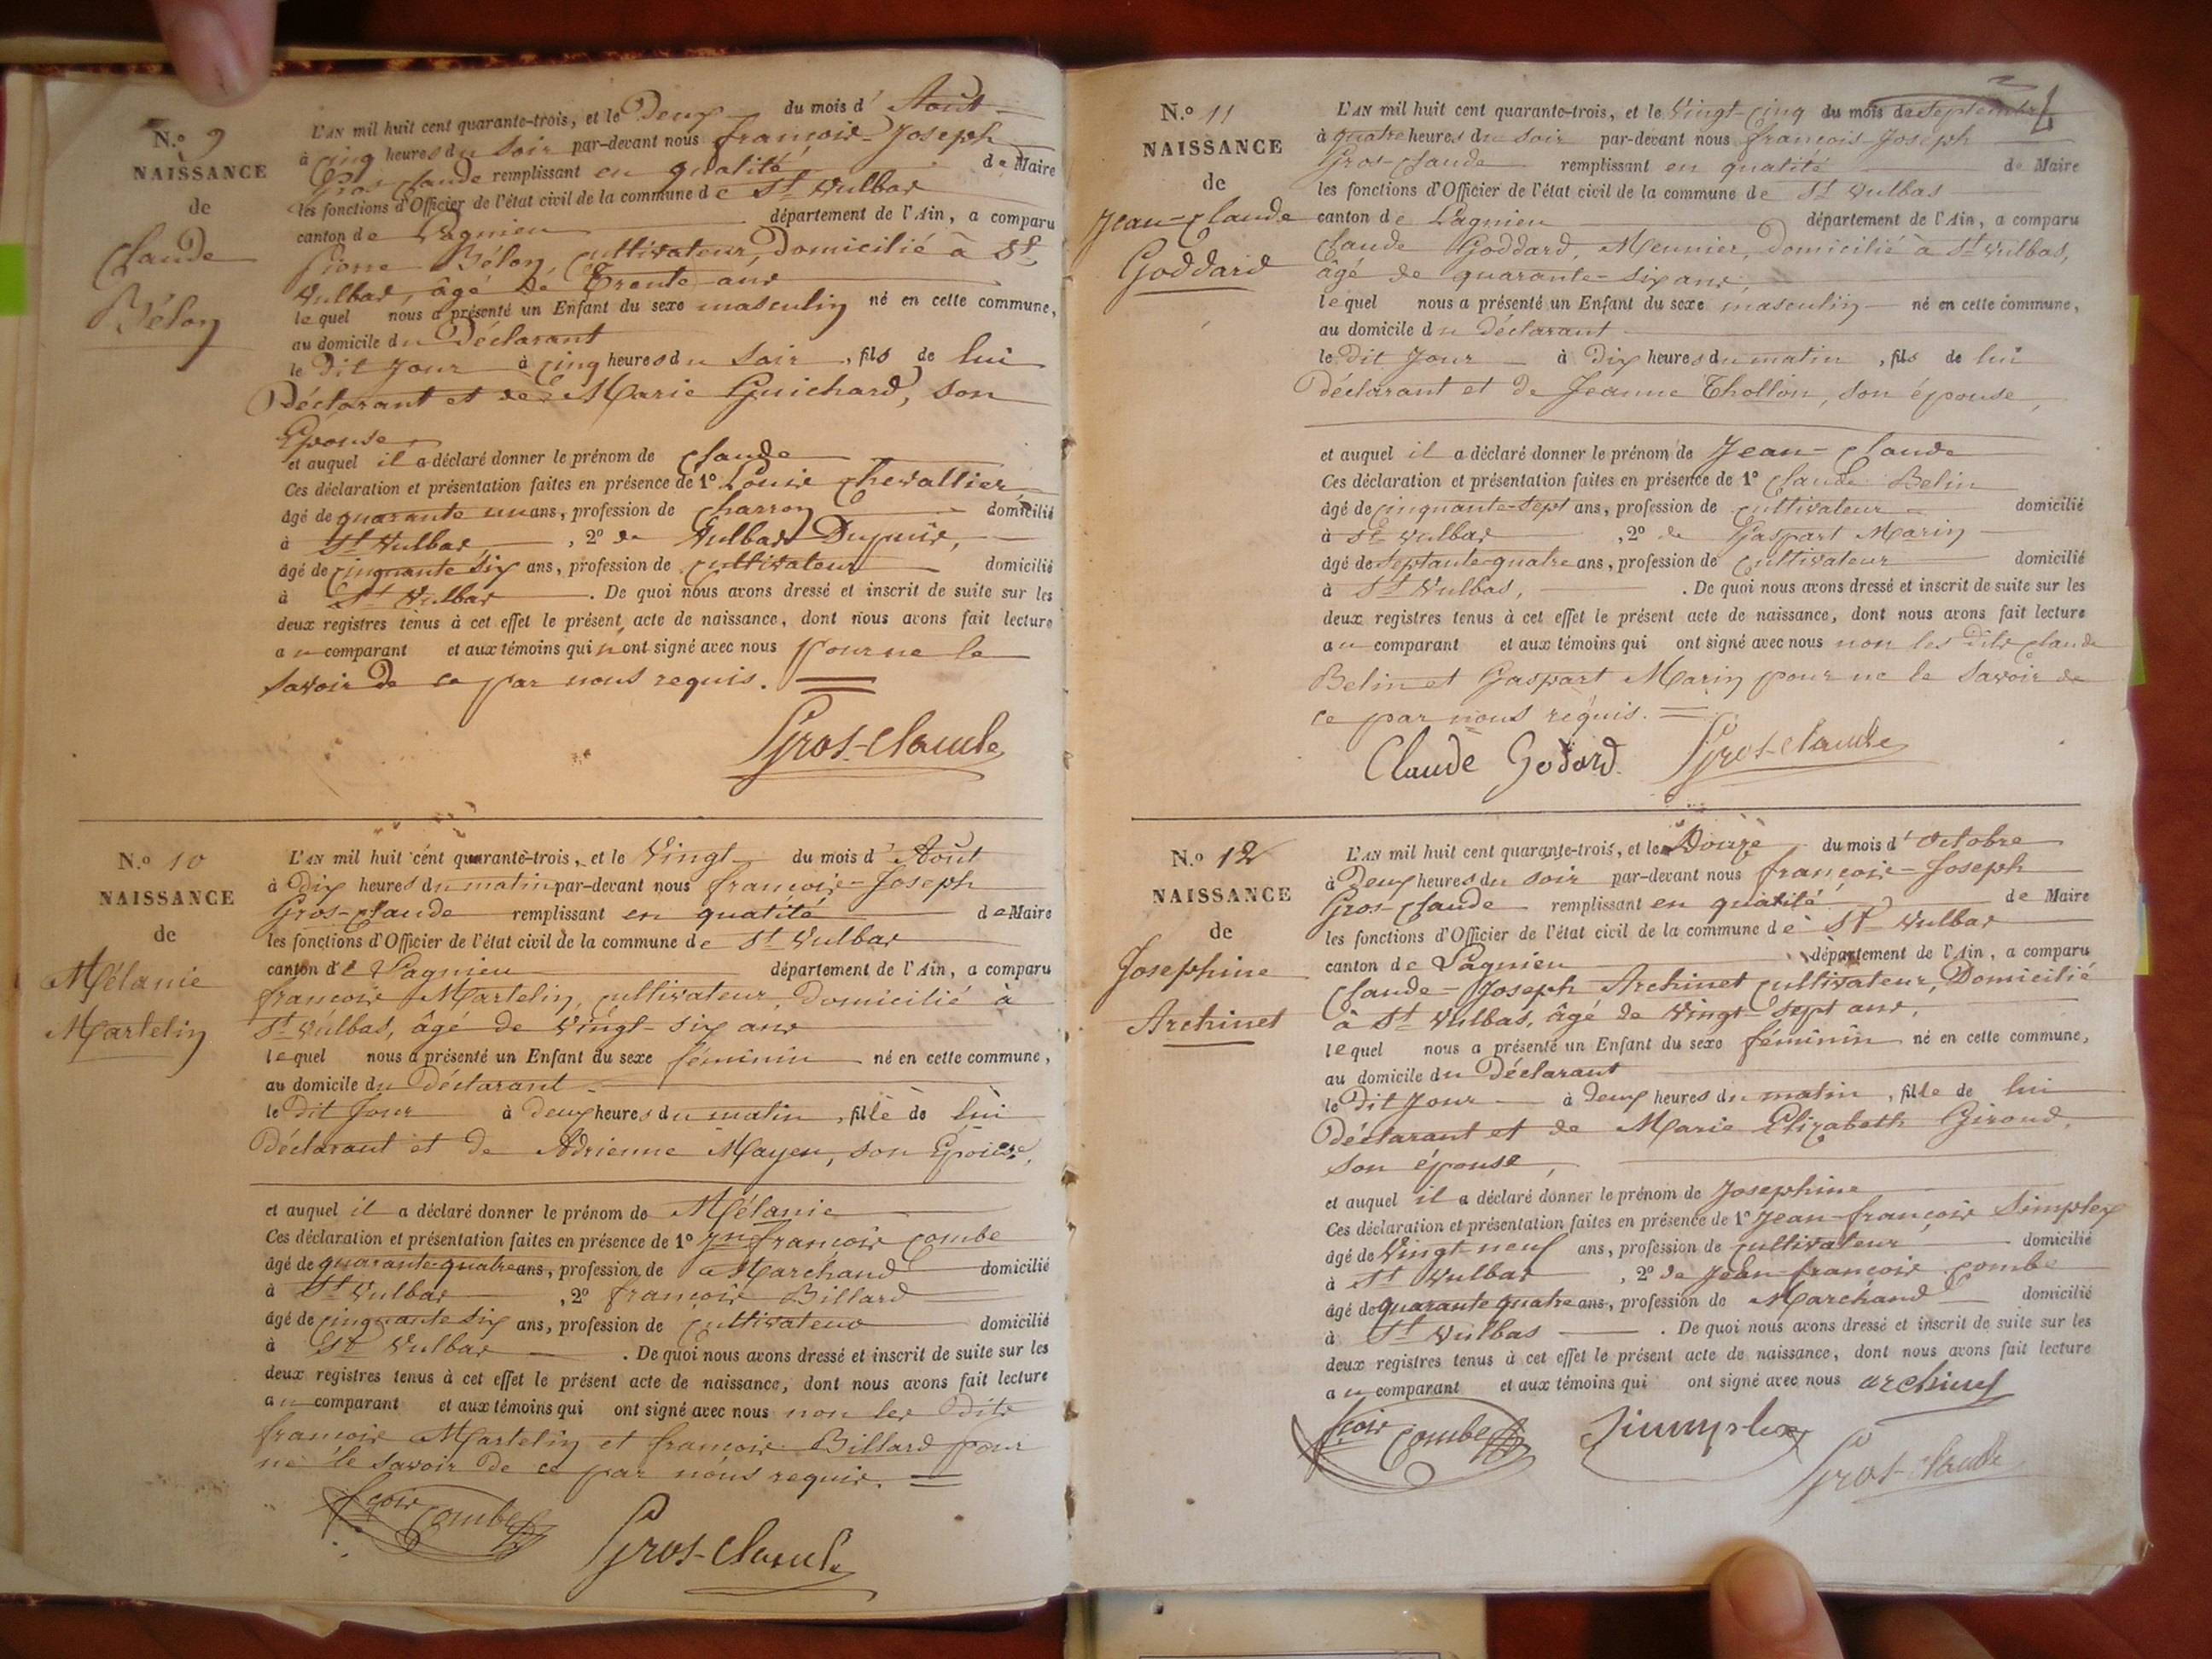 N.º 9
NAISSANCE
de
Claude
Bélon
L'AN mil huit cent quarante-trois, et le Deux du mois d' Août
à Cinq heures du Soir par-devant nous françois-Joseph
Gros-Claude remplissant en qualité de Maire
les fonctions d'Officier de l'état civil de la commune de St Vulbas
canton de Lagnieu département de l'Ain, a comparu
Pierre Bélon, Cultivateur, Domicilié à St
Vulbas, âgé de Trente ans
lequel nous a présenté un Enfant du sexe masculin né en cette commune,
au domicile du Déclarant
le Dit Jour à Cinq heures du Soir, fils de lui
Déclarant et de Marie Guichard, son
Epouse
et auquel il a déclaré donner le prénom de Claude
Ces déclaration et présentation faites en présence de 1º Louis Chevallier
âgé de quarante un ans, profession de Charron domicilié
à St Vulbas, 2º de Vulbas Dupuis,
âgé de Cinquante Six ans, profession de Cultivateur domicilié
à St Vulbas. De quoi nous avons dressé et inscrit de suite sur les
deux registres tenus à cet effet le présent acte de naissance, dont nous avons fait lecture
au comparant et aux témoins qui n'ont signé avec nous pour ne le
savoir de ce par nous requis.
Gros-Claude
N.º 10
NAISSANCE
de
Mélanie
Martelin
L'AN mil huit cent quarante-trois, et le Vingt du mois d' Août
à Dix heures du matin par-devant nous françois-Joseph
Gros-Claude remplissant en qualité de Maire
les fonctions d'Officier de l'état civil de la commune de St Vulbas
canton de Lagnieu département de l'Ain, a comparu
françois Martelin, Cultivateur, Domicilié à
St Vulbas, âgé de Vingt-six ans
lequel nous a présenté un Enfant du sexe féminin né en cette commune,
au domicile du Déclarant
le Dit Jour à Deux heures du matin, fille de lui
Déclarant et de Adrienne Mayeu, son Epouse,
et auquel il a déclaré donner le prénom de Mélanie
Ces déclaration et présentation faites en présence de 1º Jn françois Combe
âgé de quarante-quatre ans, profession de Marchand domicilié
à St Vulbas, 2º françois Billard
âgé de Cinquante Six ans, profession de Cultivateur domicilié
à St Vulbas. De quoi nous avons dressé et inscrit de suite sur les
deux registres tenus à cet effet le présent acte de naissance, dont nous avons fait lecture
au comparant et aux témoins qui ont signé avec nous non les Dits
françois Martelin et françois Billard pour
ne le savoir de ce par nous requis.
fçois Combe Gros-Claude
4
N.º 11
NAISSANCE
de
Jean-Claude
Goddard
L'AN mil huit cent quarante-trois, et le Vingt-Cinq du mois de Septembre
à quatre heures du soir par-devant nous françois-Joseph
Gros-Claude remplissant en qualité de Maire
les fonctions d'Officier de l'état civil de la commune de St Vulbas
canton de Lagnieu département de l'Ain, a comparu
Claude Goddard, Meunier, Domicilié à St Vulbas,
âgé de quarante-six ans,
lequel nous a présenté un Enfant du sexe masculin né en cette commune,
au domicile du Déclarant
le Dit Jour à Dix heures du matin, fils de lui
Déclarant et de Jeanne Thollon, son épouse,
et auquel il a déclaré donner le prénom de Jean-Claude
Ces déclaration et présentation faites en présence de 1º Claude Belin
âgé de Cinquante-Sept ans, profession de Cultivateur domicilié
à St Vulbas, 2º de Gaspart Marin
âgé de Septante-quatre ans, profession de Cultivateur domicilié
à St Vulbas,. De quoi nous avons dressé et inscrit de suite sur les
deux registres tenus à cet effet le présent acte de naissance, dont nous avons fait lecture
au comparant et aux témoins qui ont signé avec nous non les Dits Claude
Belin et Gaspart Marin pour ne le savoir de
ce par nous requis.
Claude Godard Gros-Claude
N.º 12
NAISSANCE
de
Josephine
Archinet
L'AN mil huit cent quarante-trois, et le Douze du mois d' Octobre
à Deux heures du soir par-devant nous françois-Joseph
Gros-Claude remplissant en qualité de Maire
les fonctions d'Officier de l'état civil de la commune de St Vulbas
canton de Lagnieu département de l'Ain, a comparu
Claude-Joseph Archinet Cultivateur, Domicilié
à St Vulbas, âgé de Vingt-Sept ans,
lequel nous a présenté un Enfant du sexe féminin né en cette commune,
au domicile du Déclarant
le Dit Jour à Deux heures du matin, fille de lui
Déclarant et de Marie Elizabeth Giroud,
son épouse,
et auquel il a déclaré donner le prénom de Josephine
Ces déclaration et présentation faites en présence de 1º Jean-françois Simplex
âgé de Vingt-neuf ans, profession de Cultivateur domicilié
à St Vulbas, 2º de Jean-françois Combe
âgé de quarante quatre ans, profession de Marchand domicilié
à St Vulbas. De quoi nous avons dressé et inscrit de suite sur les
deux registres tenus à cet effet le présent acte de naissance, dont nous avons fait lecture
au comparant et aux témoins qui ont signé avec nous archinet
fçois Combe Simplex Gros-Claude